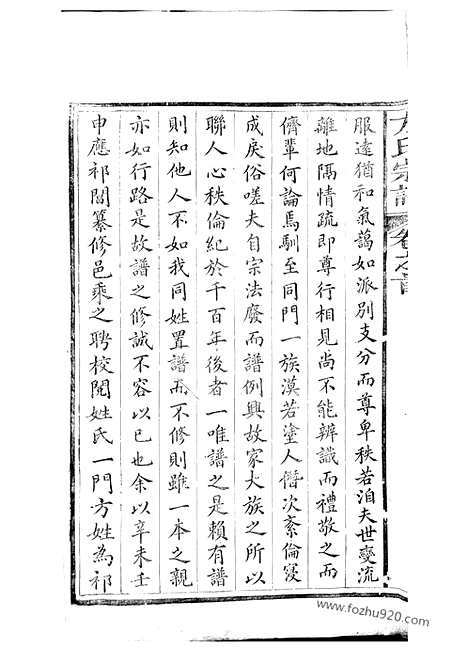 方氏宗譜 卷之首
服遠猶和氣藹如派別支分而尊卑秩若洎夫世變流
離地隔情疏即尊行相見尚不能辨識而禮敬之而
儕輩何論焉馴至同門一族漠若塗人僭次紊倫寖
成戾俗嗟夫自宗法廢而譜例興故家大族之所以
聯人心秩倫紀於千百年後者一唯譜之是賴有譜
則知他人不如我同姓置譜而不修則雖一本之親
亦如行路是故譜之修誠不容以已也余以辛未壬
申應祁閶纂修邑乘之聘校閱姓氏一門方姓為祁
www.fozhu920.com